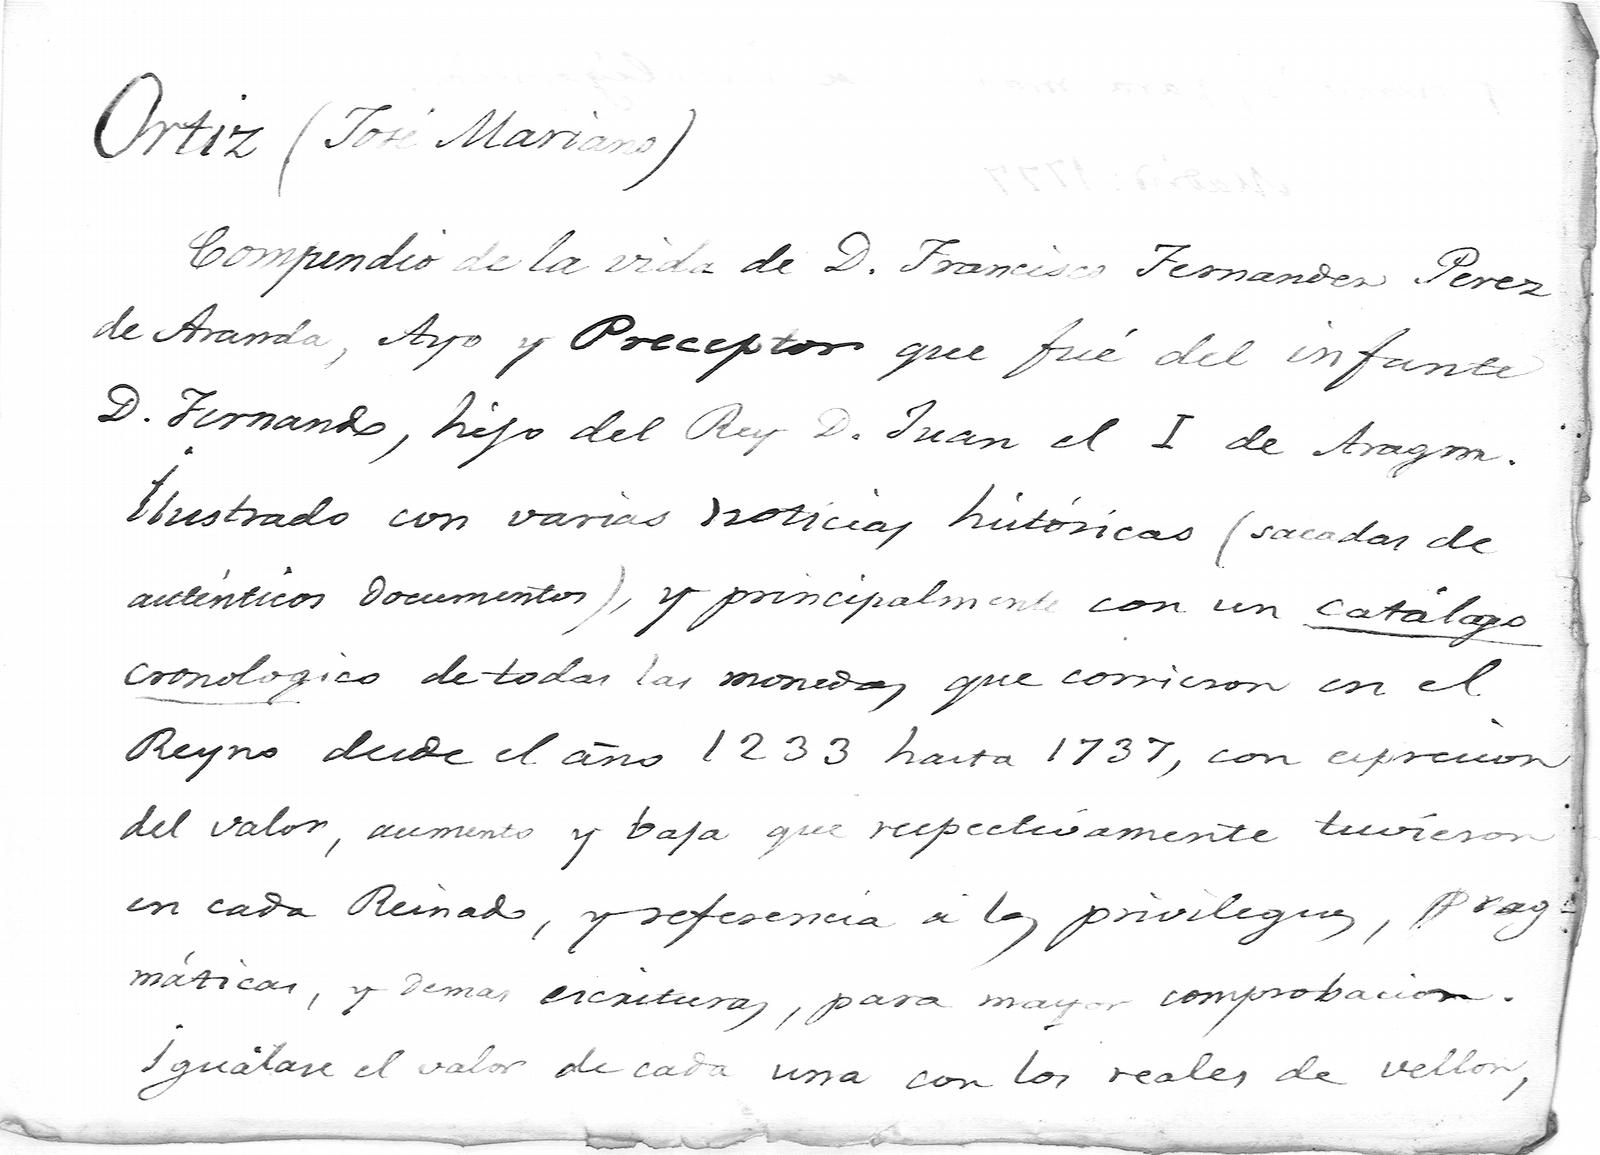 Ortiz (José Mariano)
Compendio de la vida de D. Francisco Fernandez Perez
de Aranda, Ayo y Preceptor que fué del infante
D. Fernando, hijo del Rey D. Juan el I de Aragon.
Ilustrado con varias noticias históricas (sacadas de
auténticos documentos), y principalmente con un catálogo
cronologico de todas las monedas que corrieron en el
Reyno desde el año 1233 hasta 1737, con expresion
del valor, aumento y baja que respectivamente tuvieron
en cada Reinado, y referencia á los privilegios, Prag-
máticas, y demas escrituras, para mayor comprobacion.
Iguálase el valor de cada una con los reales de vellon,